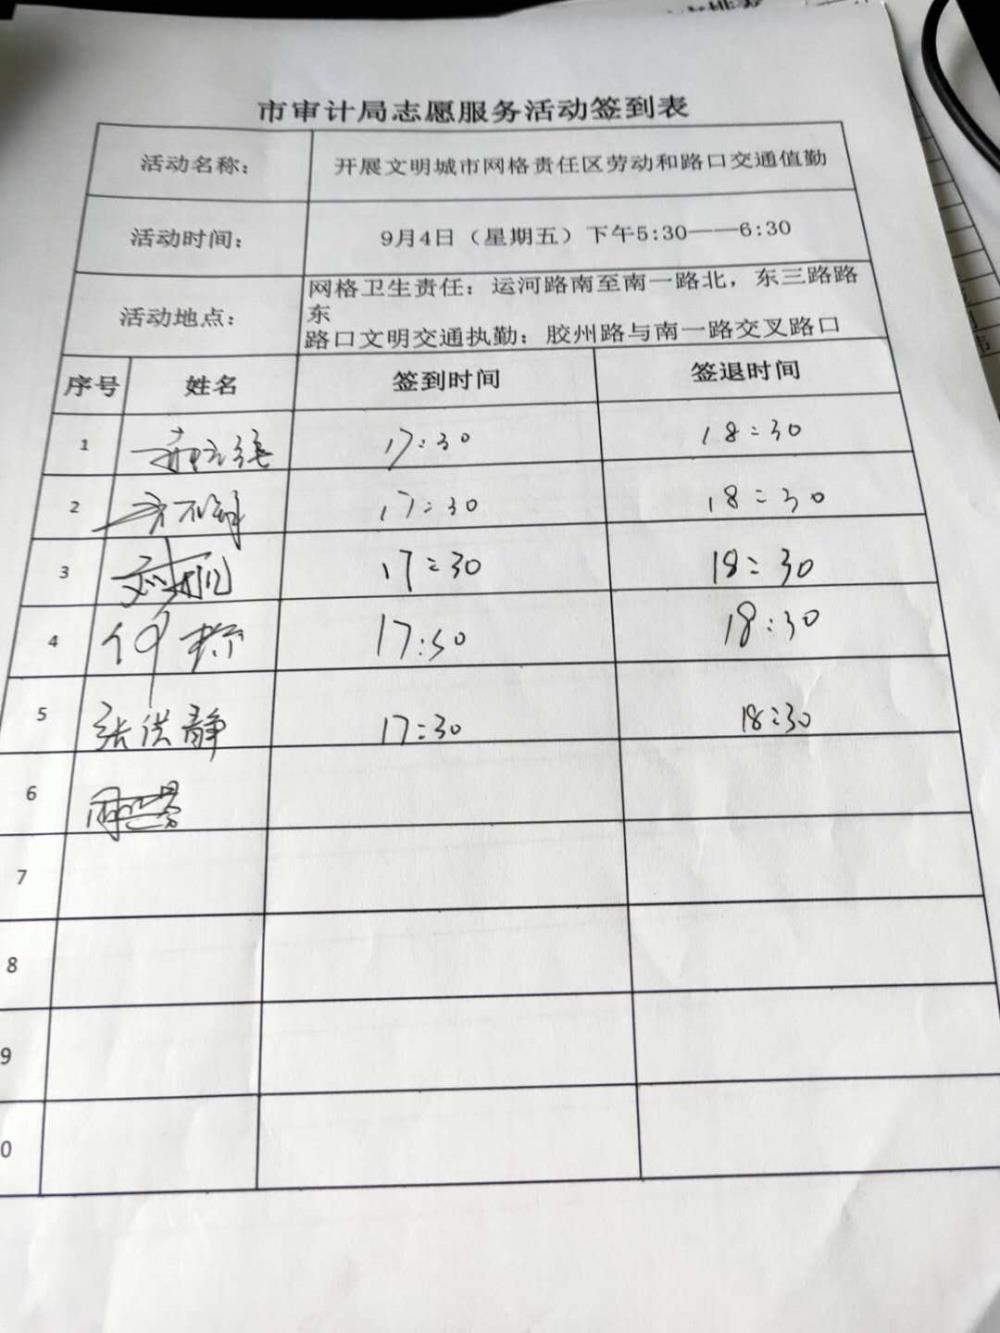 市审计局志愿服务活动签到表
活动名称： 开展文明城市网格责任区劳动和路口交通值勤
活动时间： 9月4日（星期五）下午5:30——6:30
活动地点： 网格卫生责任：运河路南至南一路北，东三路路
东
路口文明交通执勤：胶州路与南一路交叉路口
序号 姓名 签到时间 签退时间
1 17:30 18:30
2 17:30 18:30
3 17:30 18:30
4 17:30 18:30
5 张洪静 17:30 18:30
6
7
8
9
0